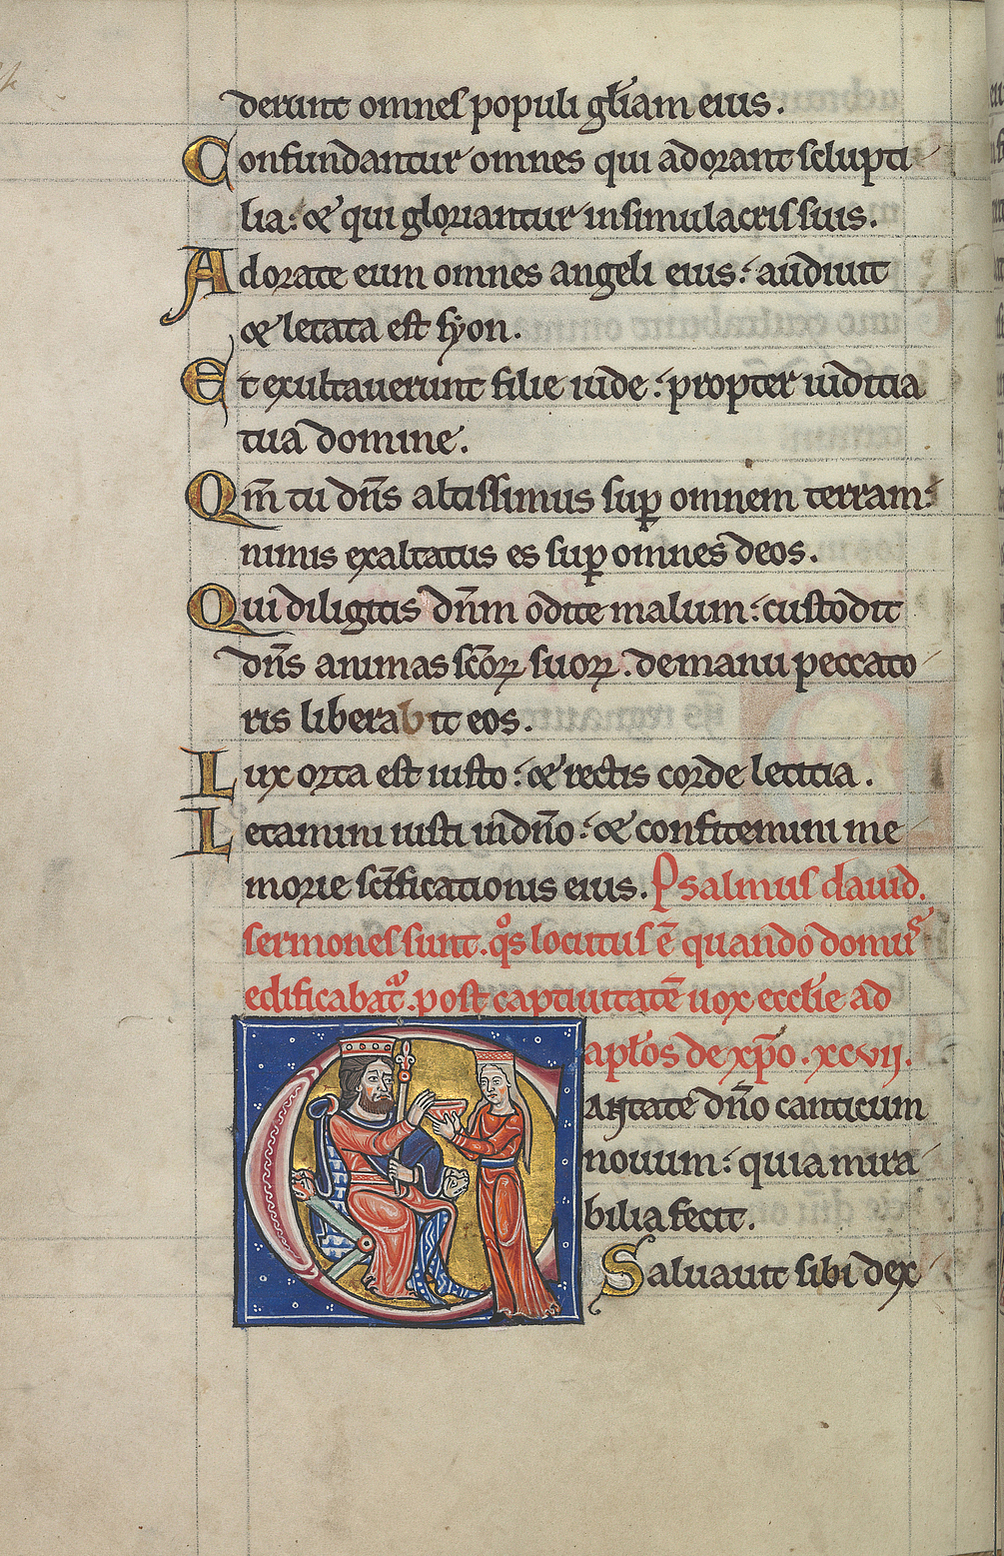 derunt omnes populi gl̄iam eius.
Confundantur omnes qui adorant sclupti
lia: & qui gloriantur in simulacris suis.
Adorate eum omnes angeli eius: audiuit
& letata est syon.
Et exultauerunt filie iude: propter iuditia
tua domine.
Qm̄ tu dn̄s altissimus sup̱ omnem terram:
nimis exaltatus es sup̱ omnes deos.
Qui diligitis dn̄m odite malum: custodit
dn̄s animas sc̄oꝝ suoꝝ. de manu peccato
ris liberabit eos.
Lux orta est iusto: & rectis corde letitia.
Letamini iusti in dn̄o: & confitemini me
morie sc̄ificationis eius. Psalmus dauid.
sermones sunt. qͦs locutus ē quando domus
edificabat᷑. post captiuitatē uox eccl̄ie ad
apl̄os de xp̄o. xcvij.
Cantate dn̄o canticum
nouum: quia mira
bilia fecit.
Saluauit sibi dex